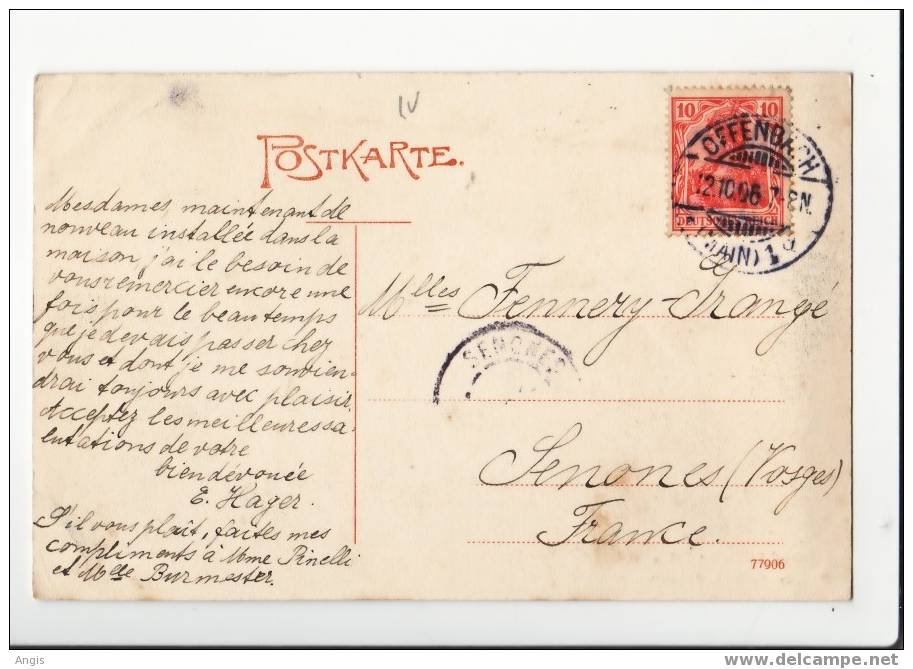 IV
POSTKARTE.
10 10
DEUTSCHES REICH
OFFENBACH
12.10.06. 7-8N.
(MAIN) 1
Mesdames, maintenant de
nouveau installée dans la
maison j'ai le besoin de
vous remercier encore une
fois pour le beau temps
que je devais passer chez
vous et dont je me souvien-
drai toujours avec plaisir.
Acceptez les meilleures sa-
lutations de votre
bien dévouée
E. Hager.
S'il vous plaît, faites mes
compliments à Mme Pinelli
et Mlle Burmester.
Mlles Fennery-Frangé
SENONES
Senones (Vosges)
France.
77906
Angis
delcampe.net